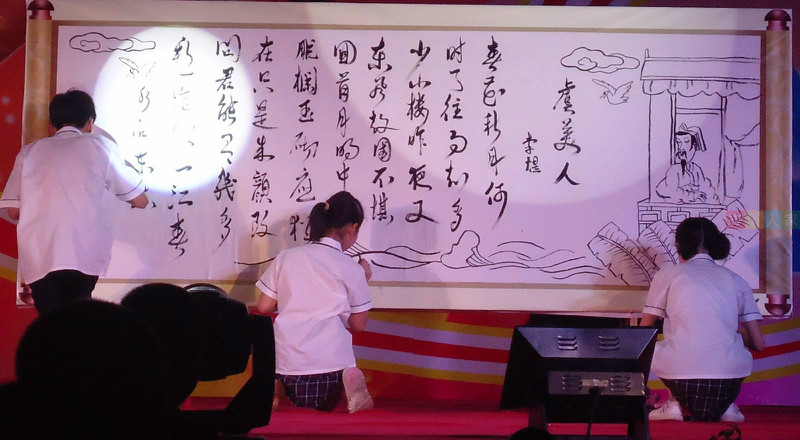 虞美人
李煜
春花秋月何
时了往事知多
少小楼昨夜又
东风故国不堪
回首月明中
雕栏玉砌应犹
在只是朱颜改
问君能有几多
愁恰似一江春
水向东流